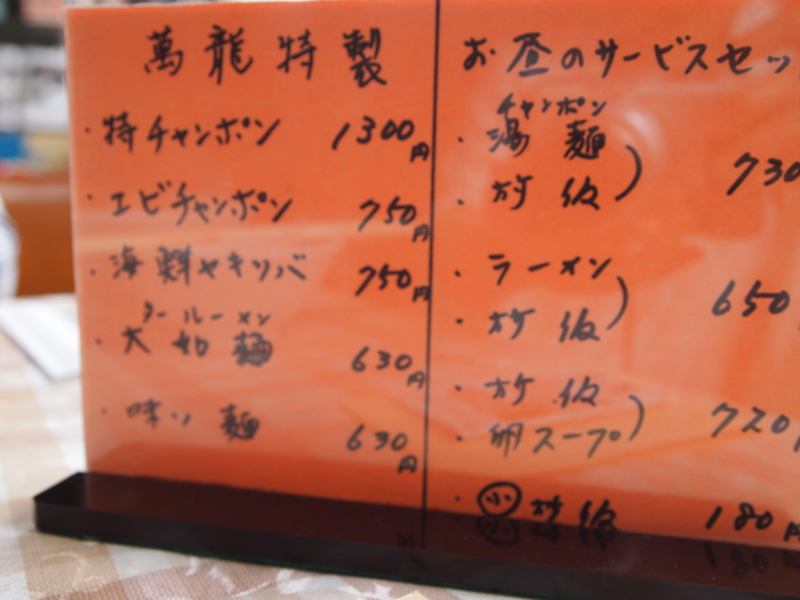 萬龍特製
・特チャンポン 1300円
・エビチャンポン 750円
・海鮮ヤキソバ 750円
タールーメン
・大如麺 630円
・味ソ麺 630円
お昼のサービスセッ
チャンポン
・湯麺
・炒飯 730
・ラーメン
・炒飯 650
・炒飯
・卵スープ 720
・小 炒飯 180円